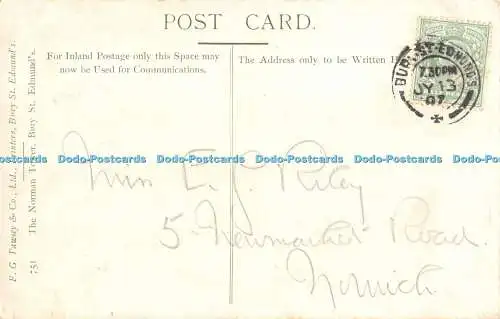 POST CARD.
For Inland Postage only this Space may
now be Used for Communications.
The Address only to be Written H
BURY ST. EDMUND'S
7.30 PM
JY 13
07
F. G. Pawsey & Co., Ltd., Printers, Bury St. Edmund's.
751 The Norman Tower, Bury St. Edmund's.
Dodo-Postcards Dodo-Postcards Dodo-Postcards Dodo-Postcards Dodo-Postcards Dodo-Postcards
Miss E. J. Riley
5 Newmarket Road.
Norwich